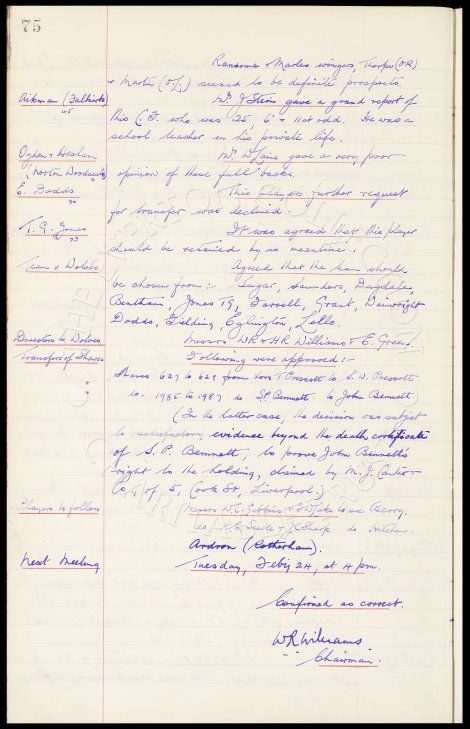 75
Ransome & Marles wingers, Thorpe (OR)
& Martin (O.L.) seemed to be definite prospects.
Aikman (Falkirk) v5
Mr. J Steen gave a grand report of
this C.F. who was 25 6' & 11st odd. He was a
school teacher in his private life.
Ogden & Hesham
(North. Woodseats)
Mr. W. Laine gave a very poor
opinion of these full backs.
E. Dodds
This players further request
for transfer was declined.
T. G. Jones
It was agreed that this player
should be retained by us meantime.
Team v Wolves
Agreed that the team should
be chosen from:- Sagar, Saunders, Dugdale,
Bentham, Jones TG, Farrell, Grant, Wainwright
Dodds, Fielding, Eglington, Lello.
Directors to Wolves
Messrs WR & HR Williams & E. Green.
Transfers of Shares
Following were approved:-
Shares 627 to 629 from Prescott to S. W. Prescott
do. 1985 to 1987 do S.P. Bennett to John Bennett
(In the latter case, the decision was subject
to satisfactory evidence beyond the death certificate
of S. P. Bennett, to prove John Bennett's
right to the holding, claimed by M. J. Cantor &
Co., of 5, Cook St, Liverpool.)
Players to follow
Messrs W.C. Gibbins & to see Barry.
do R. E. Searle & Sharp do Hitchen.
Ardron (Rotherham).
Next Meeting
Tuesday, Feby 24, at 4 pm.
Confirmed as correct.
W R Williams
Chairman.